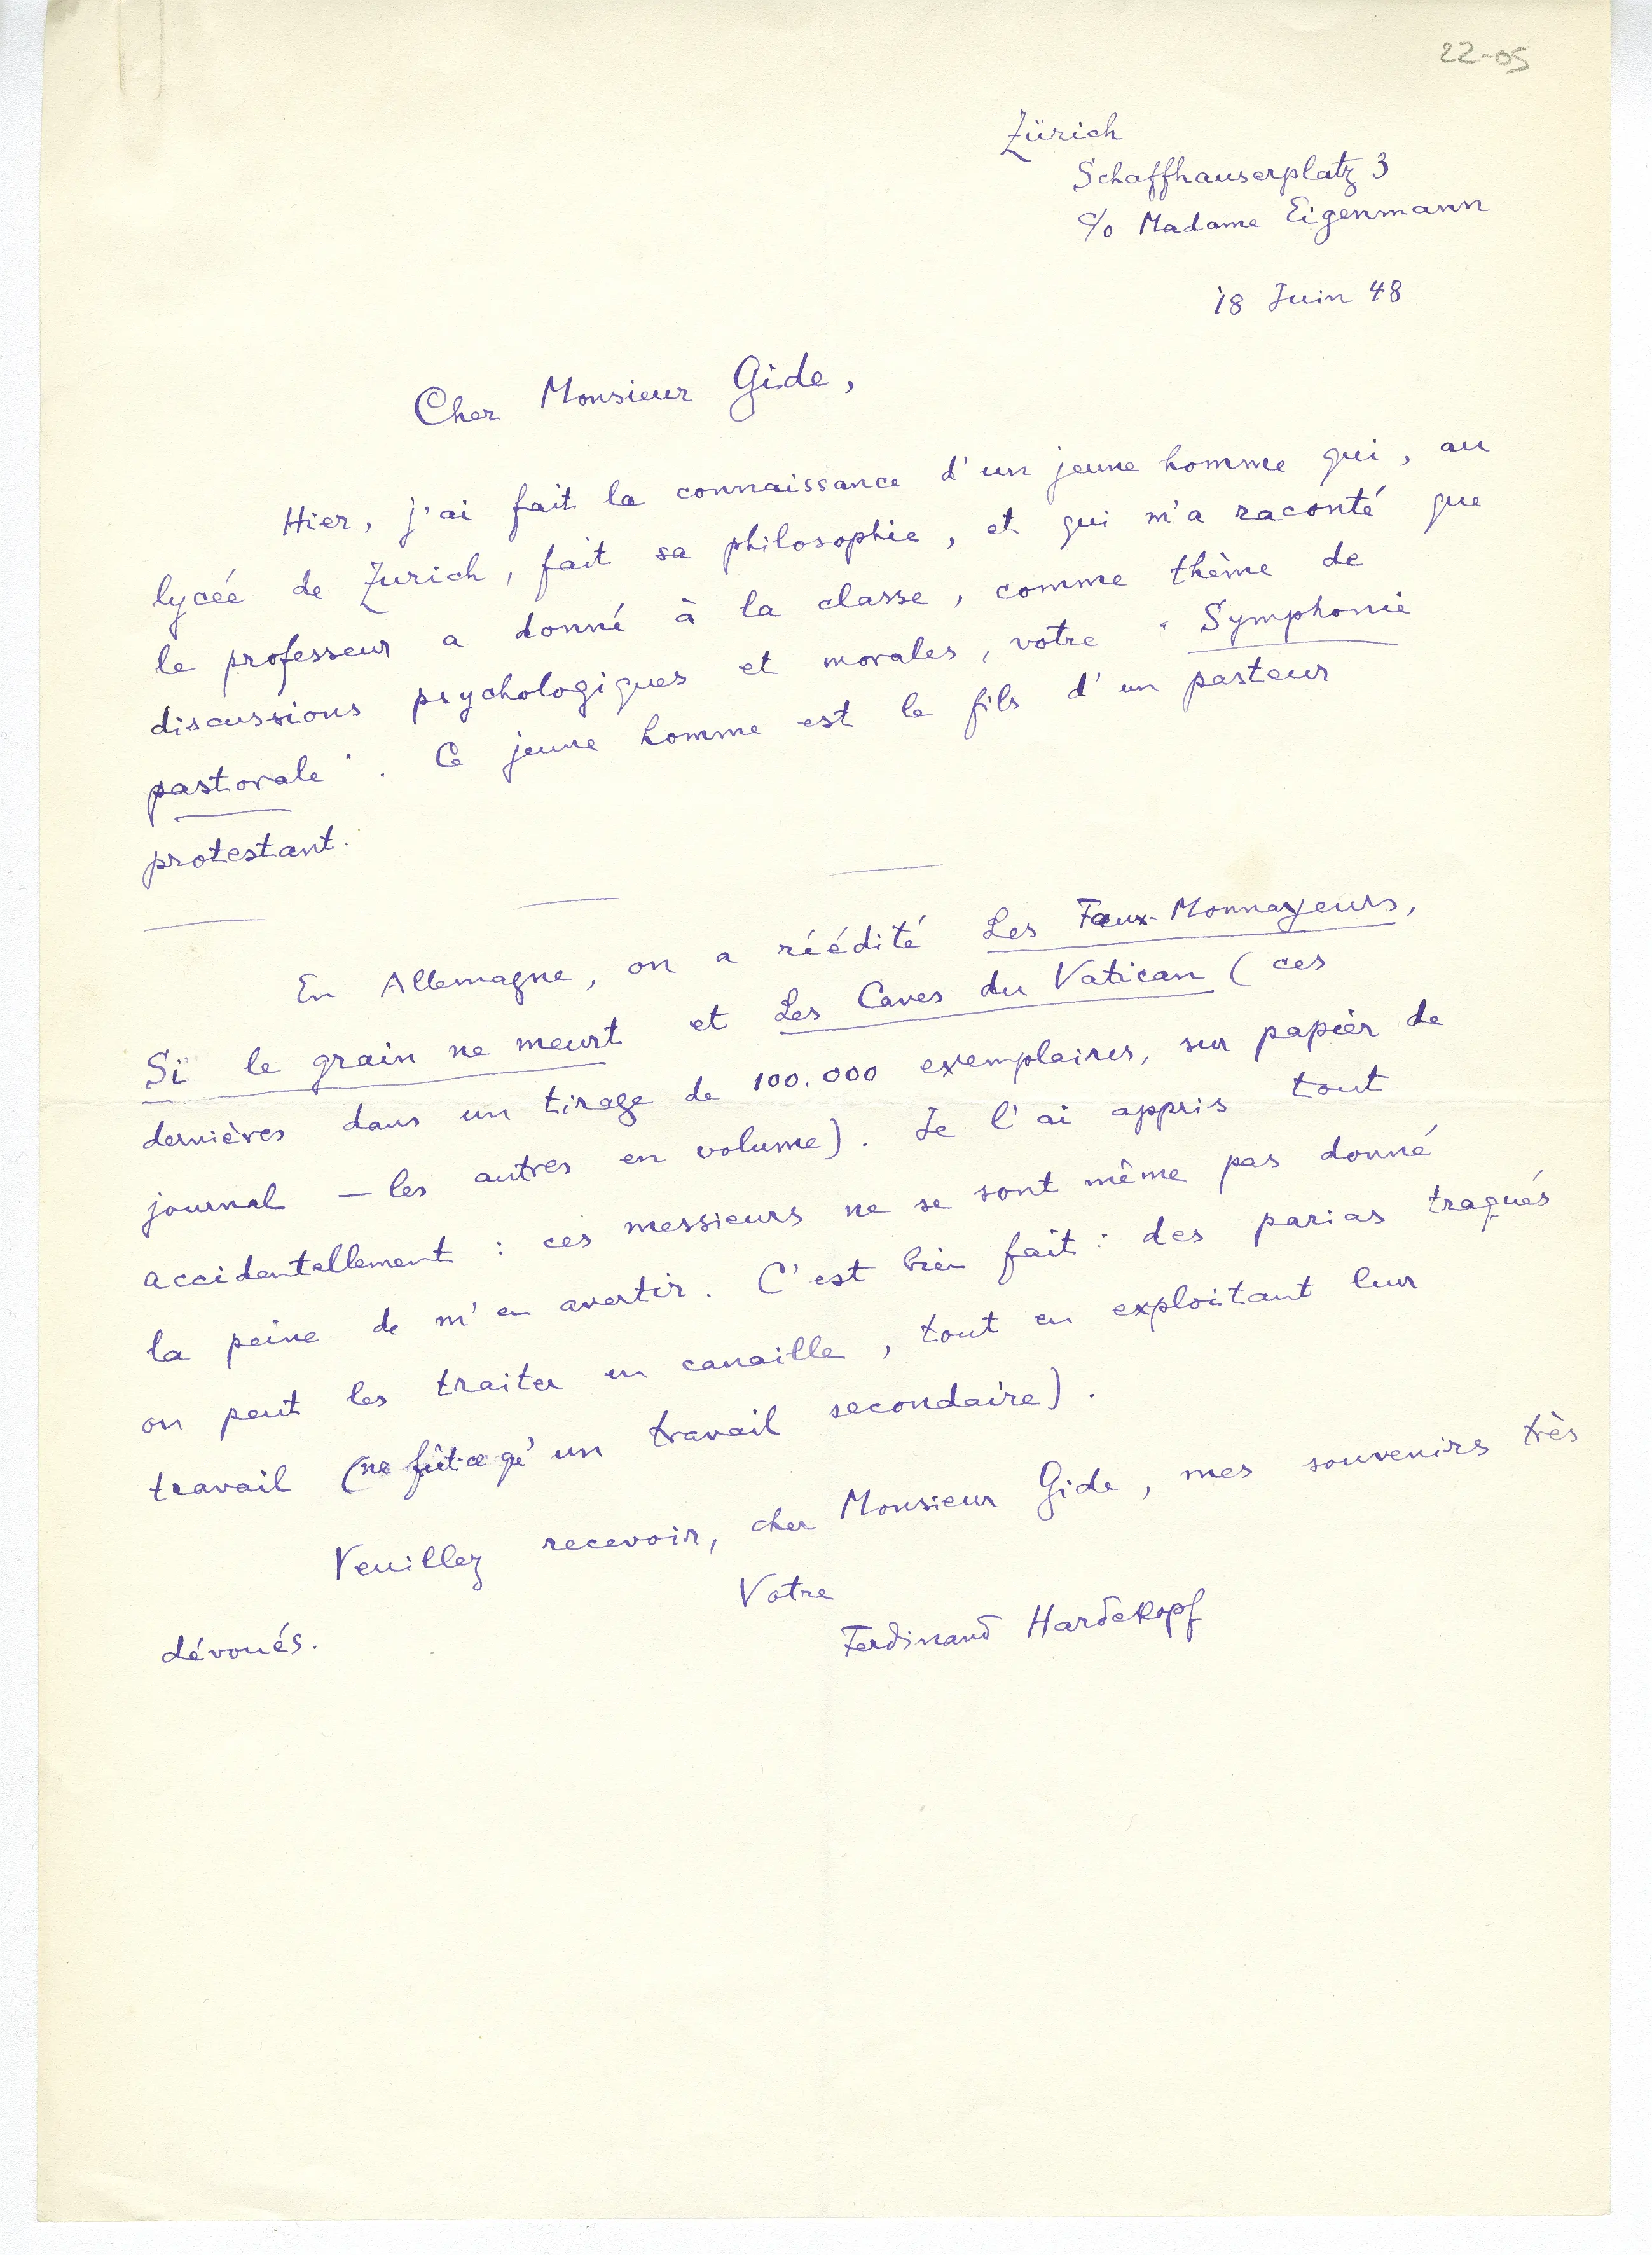 22-05
Zürich
Schaffhauserplatz 3
c/o Madame Eigenmann
18 Juin 48
Cher Monsieur Gide,
Hier, j'ai fait la connaissance d'un jeune homme qui, au
lycée de Zurich, fait sa philosophie, et qui m'a raconté que
le professeur a donné à la classe, comme thème de
discussions psychologiques et morales, votre "Symphonie
pastorale". Ce jeune homme est le fils d'un pasteur
protestant.
En Allemagne, on a réédité Les Faux-Monnayeurs,
Si le grain ne meurt et Les Caves du Vatican (ces
dernières dans un tirage de 100.000 exemplaires, sur papier de
journal — les autres en volume). Je l'ai appris tout
accidentellement : ces messieurs ne se sont même pas donné
la peine de m'en avertir. C'est bien fait : des parias traqués
on peut les traiter en canaille, tout en exploitant leur
travail (ne fût-ce qu'un travail secondaire).
Veuillez recevoir, cher Monsieur Gide, mes souvenirs très
dévoués.
Votre
Ferdinand Hardekopf